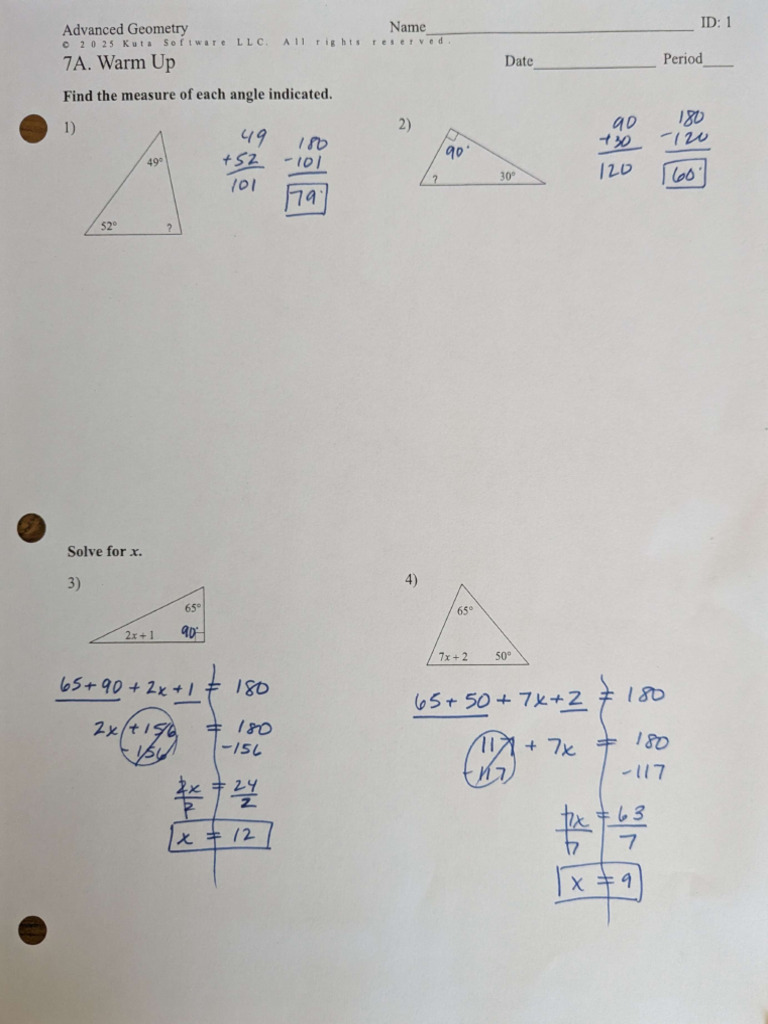 Advanced Geometry Name____________ ID: 1
© 2025 Kuta Software LLC. All rights reserved.
7A. Warm Up Date____________ Period____
Find the measure of each angle indicated.
1)
49°
52°
?
49
+52
101
180
-101
79°
2)
90°
?
30°
90
+30
120
180
-120
60°
Solve for x.
3)
65°
2x + 1
90°
65+90 + 2x + 1 = 180
2x + 156 = 180
-156 -156
2x = 24
2 2
x = 12
4)
65°
7x + 2
50°
65 + 50 + 7x + 2 = 180
117 + 7x = 180
-117 -117
7x = 63
7 7
x = 9